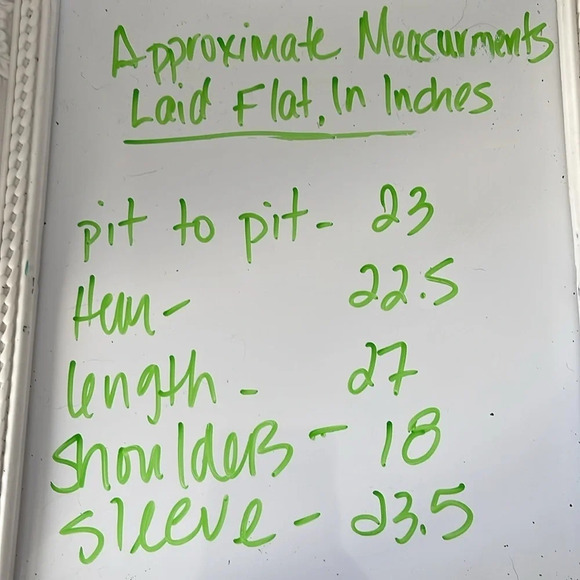 Approximate Measurments
Laid Flat, In Inches
pit to pit - 23
Hem - 22.5
length - 27
shoulders - 18
sleeve - 23.5